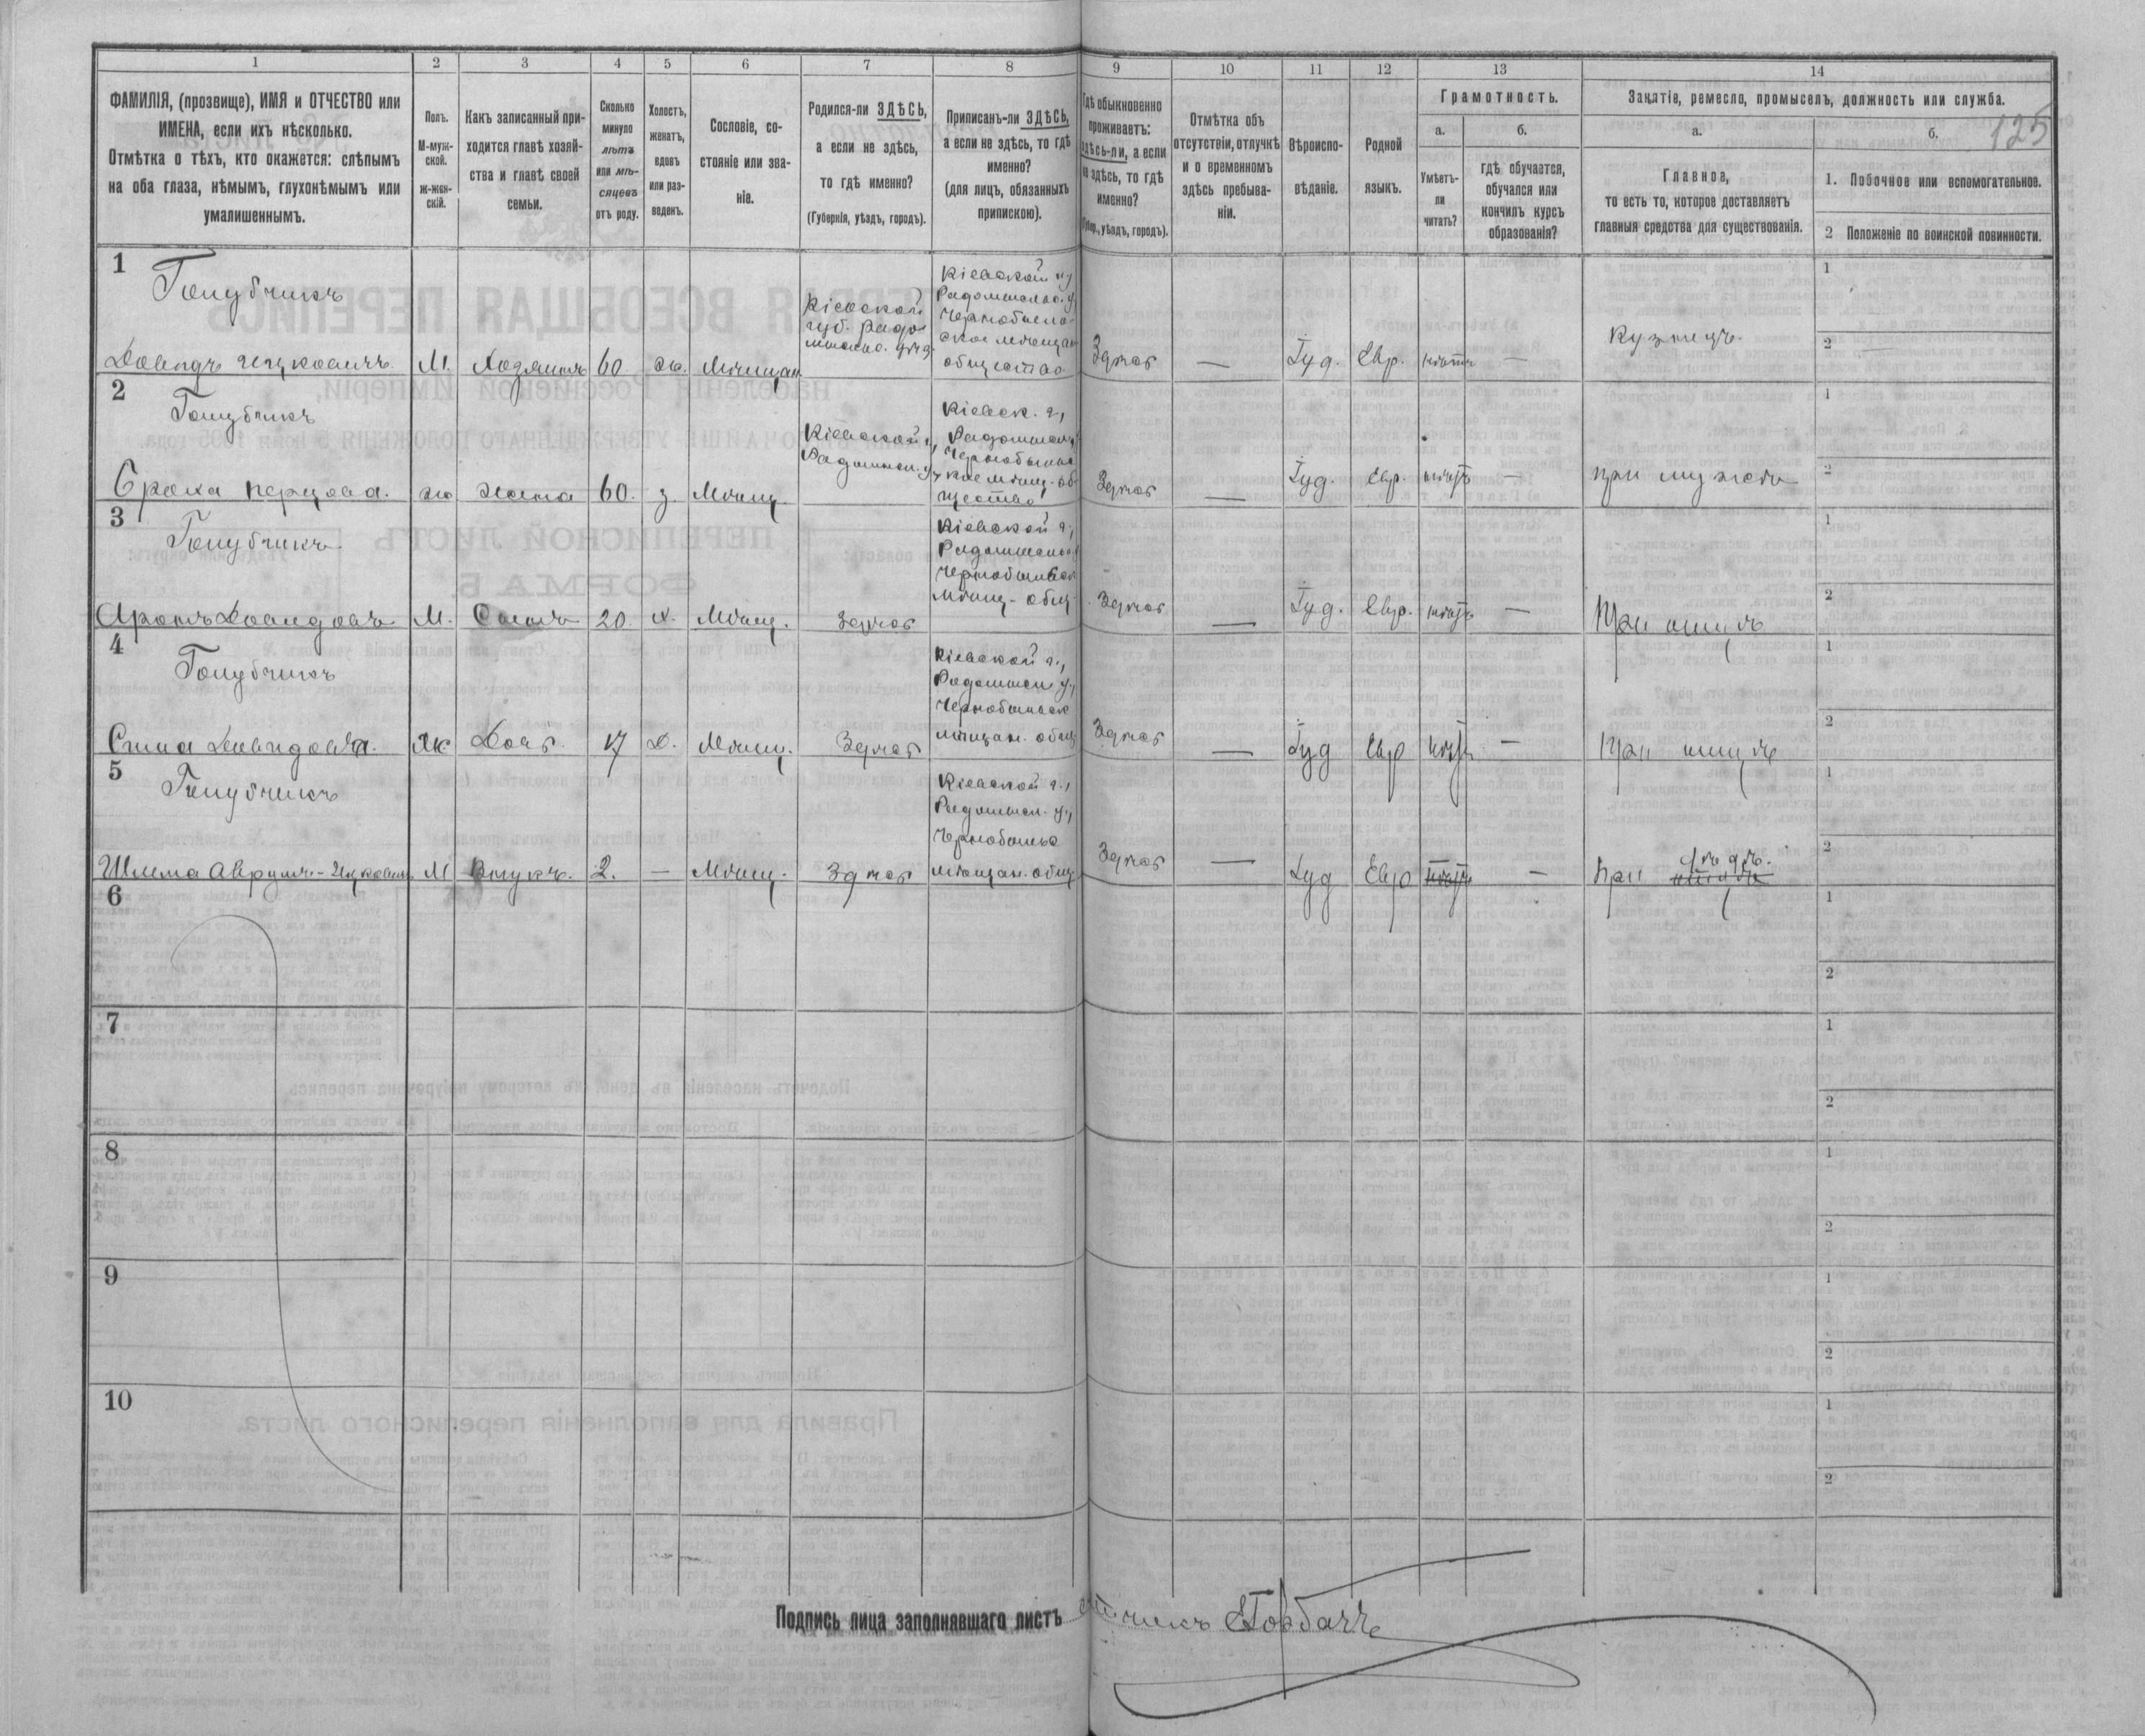 1 2 3 4 5 6 7 8 9 10 11 12 13 14
125
ФАМИЛІЯ, (прозвище), ИМЯ и ОТЧЕСТВО или
ИМЕНА, если ихъ нѣсколько.
Отмѣтка о тѣхъ, кто окажется: слѣпымъ
на оба глаза, нѣмымъ, глухонѣмымъ или
умалишеннымъ.
Полъ.
М-муж-
ской.
ж-жен-
скій.
Какъ записанный при-
ходится главѣ хозяй-
ства и главѣ своей
семьи.
Сколько
минуло
лѣтъ
или мѣ-
сяцевъ
отъ роду.
Холостъ,
женатъ,
вдовъ
или раз-
веденъ.
Сословіе, со-
стояніе или зва-
ніе.
Родился-ли ЗДѢСЬ,
а если не здѣсь,
то гдѣ именно?
(Губернія, уѣздъ, городъ).
Приписанъ-ли ЗДѢСЬ,
а если не здѣсь, то гдѣ
именно?
(для лицъ, обязанныхъ
припискою).
Гдѣ обыкновенно
проживаетъ:
здѣсь-ли, а если
не здѣсь, то гдѣ
именно?
(Губер., уѣздъ, городъ).
Отмѣтка объ
отсутствіи, отлучкѣ
и о временномъ
здѣсь пребыва-
ніи.
Вѣроиспо-
вѣданіе.
Родной
языкъ.
Грамотность.
а.
Умѣетъ-
ли
читать?
б.
гдѣ обучается,
обучался или
кончилъ курсъ
образованія?
Занятіе, ремесло, промыселъ, должность или служба.
а.
Главное,
то есть то, которое доставляетъ
главныя средства для существованія.
б.
1. Побочное или вспомогательное.
2 Положеніе по воинской повинности.
1
Голубчикъ
Довидъ Ицковичъ М. Хозяинъ 60. ж. Мѣщан.
Кіевской
губ. Радо
мысльс. уѣзд.
Кіевской гу
Радомысльс. у
Чернобыль-
ское мѣщан
общество
Здѣсь — Іуд. Евр. нѣтъ — Кузнецъ.
1
2
2
Голубчикъ
Сроха Перцова. ж Жена 60. з. Мѣщ.
Кіевской г.,
Радомысл. у.,
Кіевск. г.,
Радомысл. у
Чернобыльс
кое мѣщ. об
щество
Здѣсь — Іуд. Евр. нѣтъ — При мужѣ
1
2
3
Голубчикъ
Аронъ Довидовъ М. Сынъ 20. х. Мѣщ. Здѣсь
Кіевской г.,
Радомысльс.
Чернобыльск
мѣщ. общ.
Здѣсь — Іуд. Евр. нѣтъ — При отцѣ
1
2
4
Голубчикъ
Сима Давидова. Ж Дочь. 17 Д. Мѣщ. Здѣсь
Кіевской г.,
Радомысл у.,
Чернобыльск
мѣщан. общ
Здѣсь — Іуд Евр нѣтъ — При отцѣ
1
2
5
Голубчикъ
Шлема Аврумъ-Ицковичъ М Внукъ. 2. — Мѣщ. Здѣсь
Кіевской г.,
Радомысл. у.,
Чернобыльс
мѣщан. общ
Здѣсь — Іуд Евр нѣтъ — При дѣдѣ.
1
2
6
1
2
7
1
2
8
1
2
9
1
2
10
1
2
Подпись лица заполнявшаго листъ Горбачъ